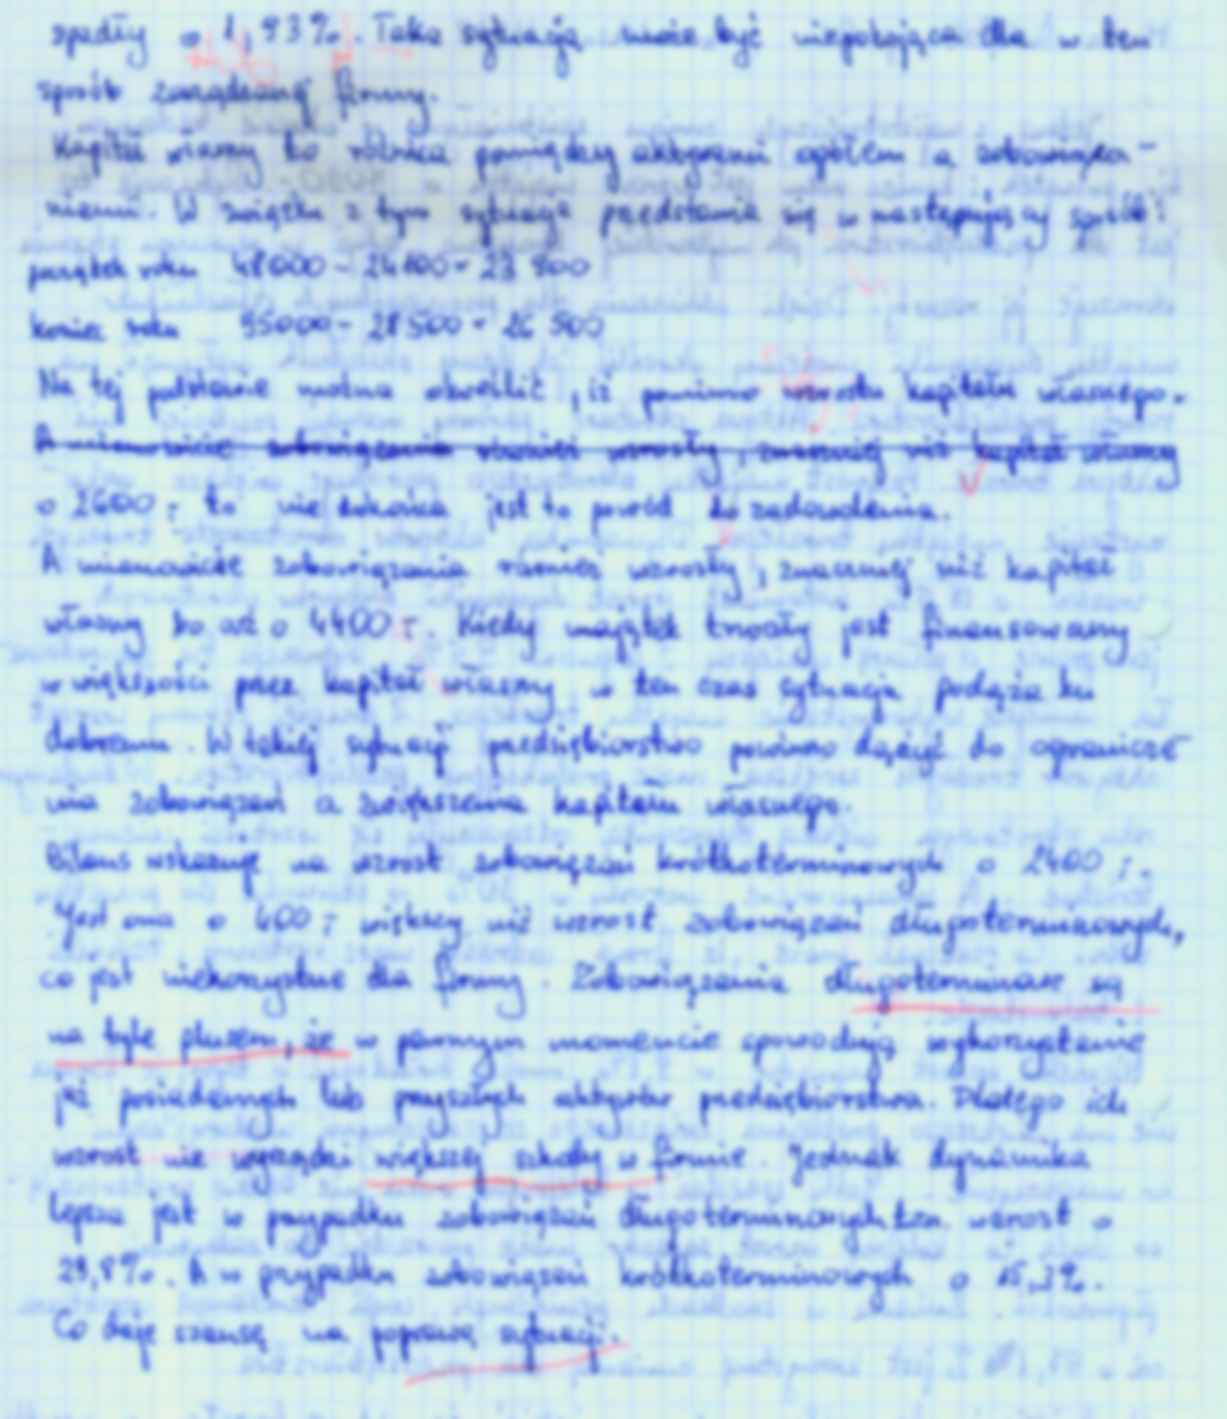 spadły o 1,93%. Taka sytuacja może być niepokojąca dla w ten
sposób zarządzanej firmy.
Kapitał własny to różnica pomiędzy aktywami ogółem a zobowiąza-
niami. W związku z tym sytuacja przedstawia się w następujący sposób:
początek roku 48000 - 24100 = 23 900
koniec roku 55000 - 28500 = 26 500
Na tej podstawie można określić, iż pomimo wzrostu kapitału własnego.
A mianowicie zobowiązania również wzrosły, znaczniej niż kapitał własny
o 2600,- to nie końca jest to powód do zadowolenia.
A mianowicie zobowiązania również wzrosły, znaczniej niż kapitał
własny bo aż o 4400,-. Kiedy majątek trwały jest finansowany
w większości przez kapitał własny w ten czas sytuacja podąża ku
dobremu. W takiej sytuacji przedsiębiorstwo powinno dążyć do ogranicze
nia zobowiązań a zwiększenia kapitału własnego.
Bilans wskazuje na wzrost zobowiązań krótkoterminowych o 2400,-.
Jest ona o 400,- większy niż wzrost zobowiązań długoterminowych,
co jest niekorzystne dla firmy. Zobowiązania długoterminowe są
na tyle plusem, że w pewnym momencie spowodują wykorzystanie
już posiadanych lub przyszłych aktywów przedsiębiorstwa. Dlatego ich
wzrost nie wyrządzi większej szkody w firmie. Jednak dynamika
lepsza jest w przypadku zobowiązań długoterminowych t.zn. wzrost o
23,8%. A w przypadku zobowiązań krótkoterminowych o 15,3%.
Co daje szansę na poprawę sytuacji.